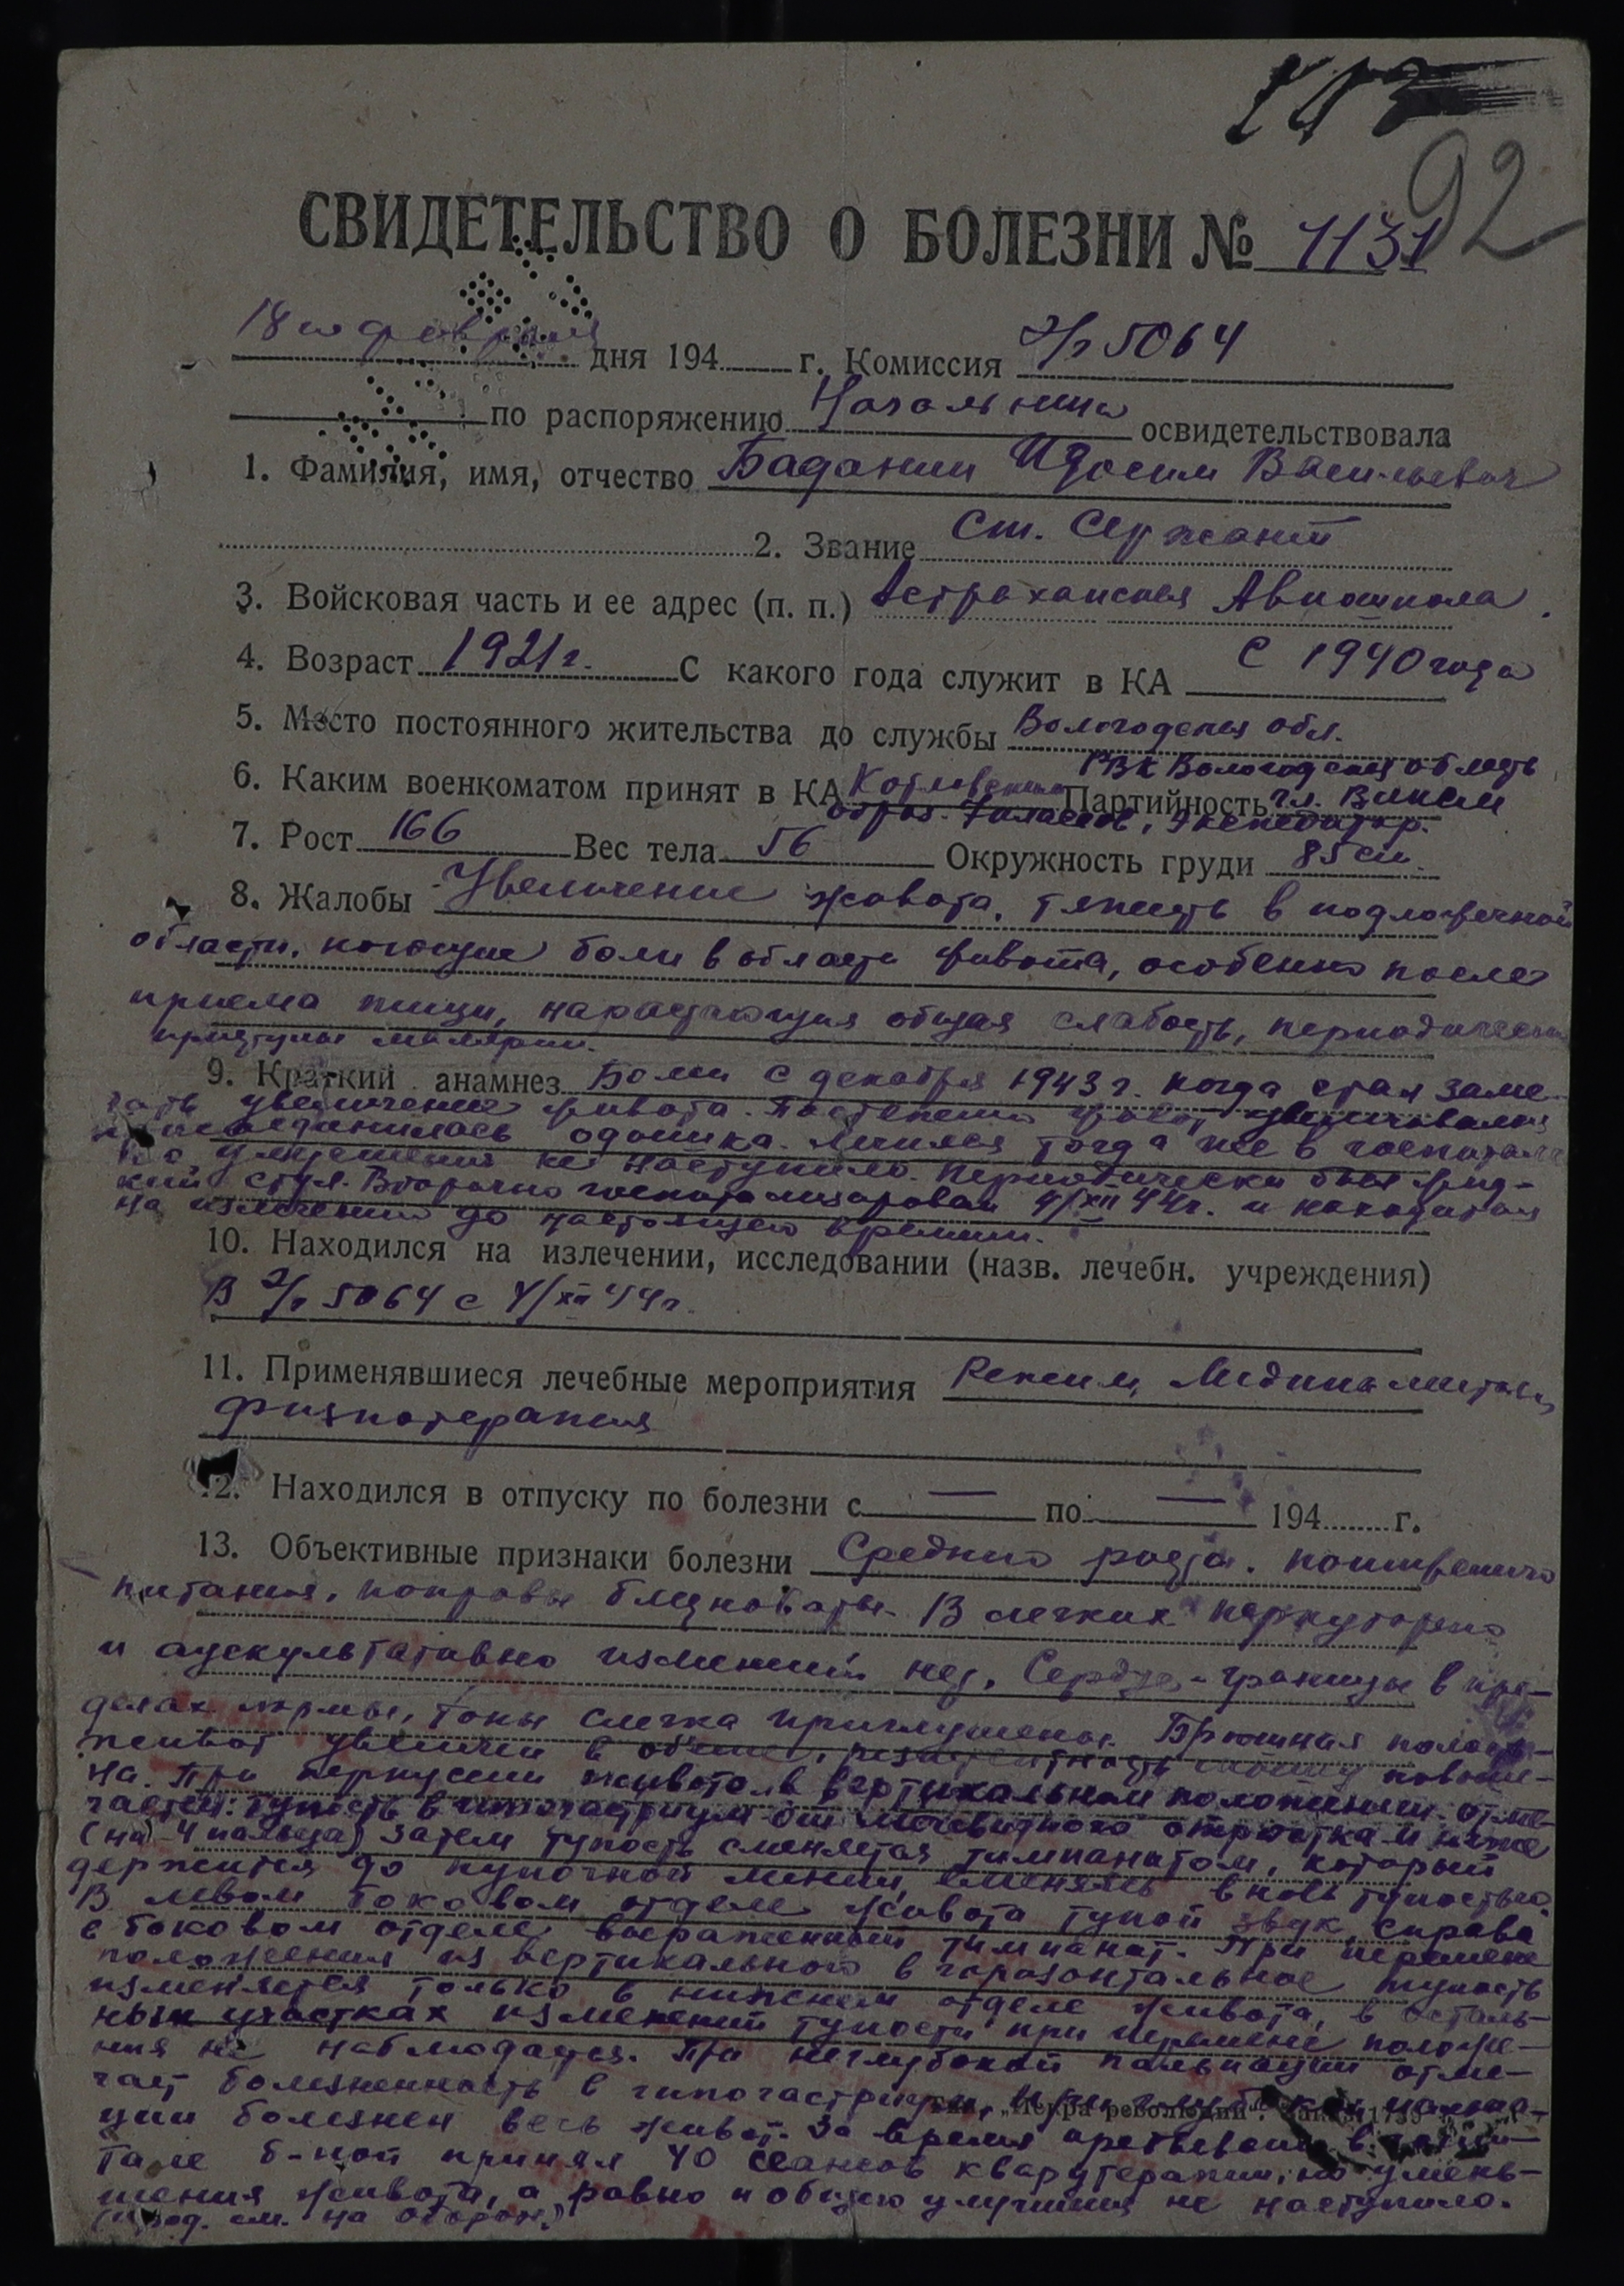 92
СВИДЕТЕЛЬСТВО О БОЛЕЗНИ № 1131
18 февраля дня 194 г. Комиссия Э/г 5064
по распоряжению Начальника освидетельствовала
1. Фамилия, имя, отчество Баданин Васильевич
2. Звание Ст. Сержант
3. Войсковая часть и ее адрес (п. п.) Астраханская Авиашкола.
4. Возраст 1921 г. С какого года служит в КА С 1940 года
5. Место постоянного жительства до службы Вологодская обл.
6. Каким военкоматом принят в КА РВК Вологодская область Партийность чл. ВЛКСМ
образ. 7 классов, экспедитор.
7. Рост 166 Вес тела 56 Окружность груди 85 см.
8. Жалобы Увеличение живота, тяжесть в подложечной
области, ноющие боли в области живота, особенно после
приема пищи, нарастающая общая слабость, периодически
приступы малярии.
9. Краткий анамнез Болен с декабря 1943 г. когда стал заме-
чать увеличение живота. Постепенно живот увеличивался
присоединилась одышка. Лечился тогда же в госпитале
но улучшения не наступило. Периодически был жид-
кий стул. Вторично госпитализирован 4/XII 44 г. и находится
на излечении до настоящего времени.
10. Находился на излечении, исследовании (назв. лечебн. учреждения)
В Э/г 5064 с 4/XII 44 г.
11. Применявшиеся лечебные мероприятия Режим,
физиотерапия
12. Находился в отпуску по болезни с — по — 194 г.
13. Объективные признаки болезни Среднего роста. пониженного
питания, покровы бледноваты. В легких перкуторно
и аускультативно изменений нет. Сердце - границы в пре-
делах нормы, тоны слегка приглушены. Брюшная полость-
живот увеличен в объеме, резистентность повыше-
на. При перкуссии живота в вертикальном положении отме-
чается: тупость в от мечевидного отростка и ниже
(на 4 пальца) затем тупость сменяется тимпанитом, который
держится до пупочной линии, сменяясь вновь тупостью.
В левом боковом отделе живота тупой звук, справа
в боковом отделе выраженный тимпанит. При перемене
положения из вертикального в горизонтальное тупость
изменяется только в нижнем отделе живота, в осталь-
ных участках изменений тупости при перемене положе-
ния не наблюдается. При неглубокой пальпации отме-
чает болезненность в гипогастриуме, при глубокой пальпа-
Тип. „Искра революции". Заказ 1739
ции болезнен весь живот. За время пребывания в госпи-
тале б-ной принял 40 сеансов кварцтерапии, но умень-
шения живота, а равно и общего улучшения не наступило.
(прод. см. на обороте)